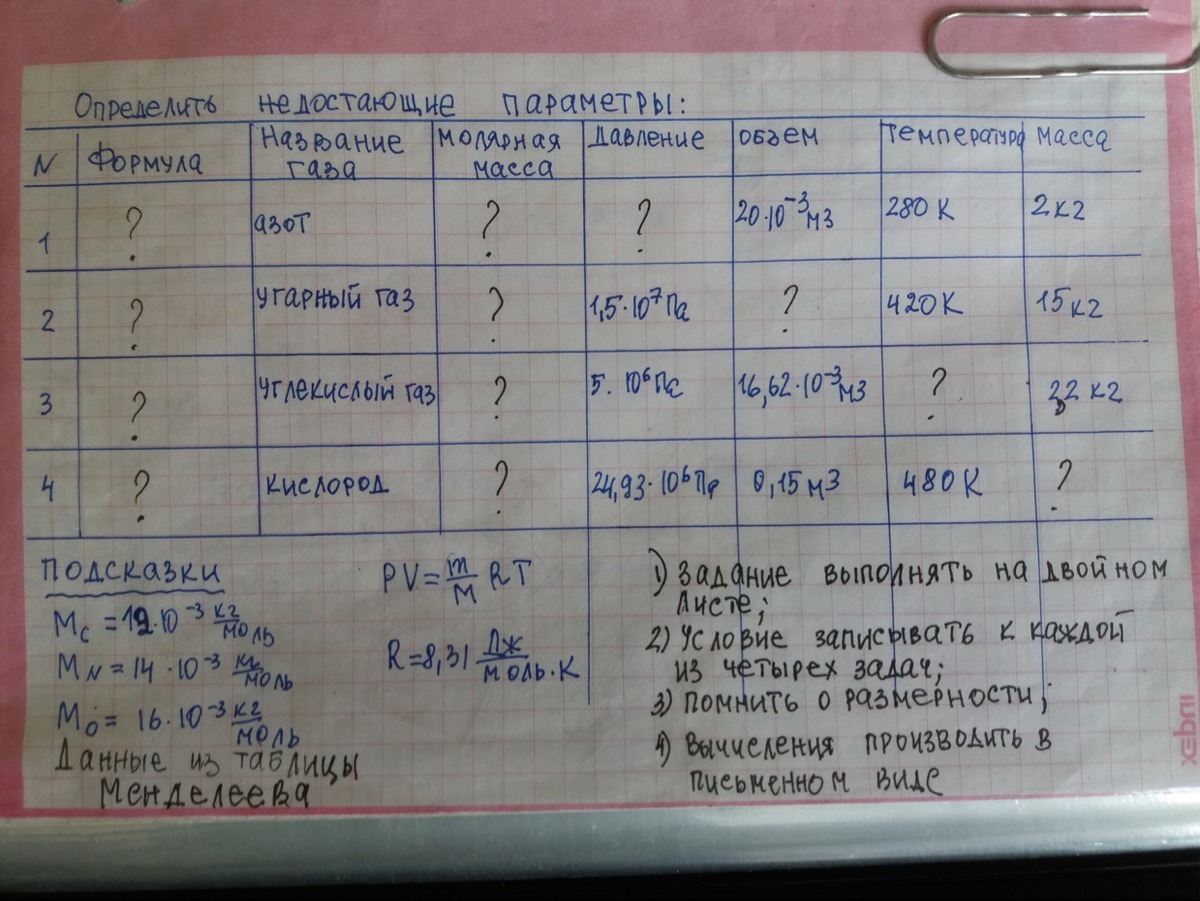 Определить недостающие параметры:
N Формула Название газа молярная масса Давление объем температура масса
1 ? азот ? ? 20·10⁻³ м3 280 К 2 кг
2 ? угарный газ ? 1,5·10⁷ Па ? 420 К 15 кг
3 ? углекислый газ ? 5·10⁶ Па 16,62·10⁻³ м3 ? 2,2 кг
4 ? кислород ? 24,93·10⁶ Па 0,15 м3 480 К ?
подсказки
Mc = 12·10⁻³ кг/моль
MN = 14·10⁻³ кг/моль
Mo = 16·10⁻³ кг/моль
Данные из таблицы
Менделеева
PV = m/M RT
R = 8,31 Дж/моль·К
1) Задание выполнять на двойном
листе;
2) Условие записывать к каждой
из четырех задач;
3) Помнить о размерности;
4) Вычисления производить в
письменном виде
INDEX